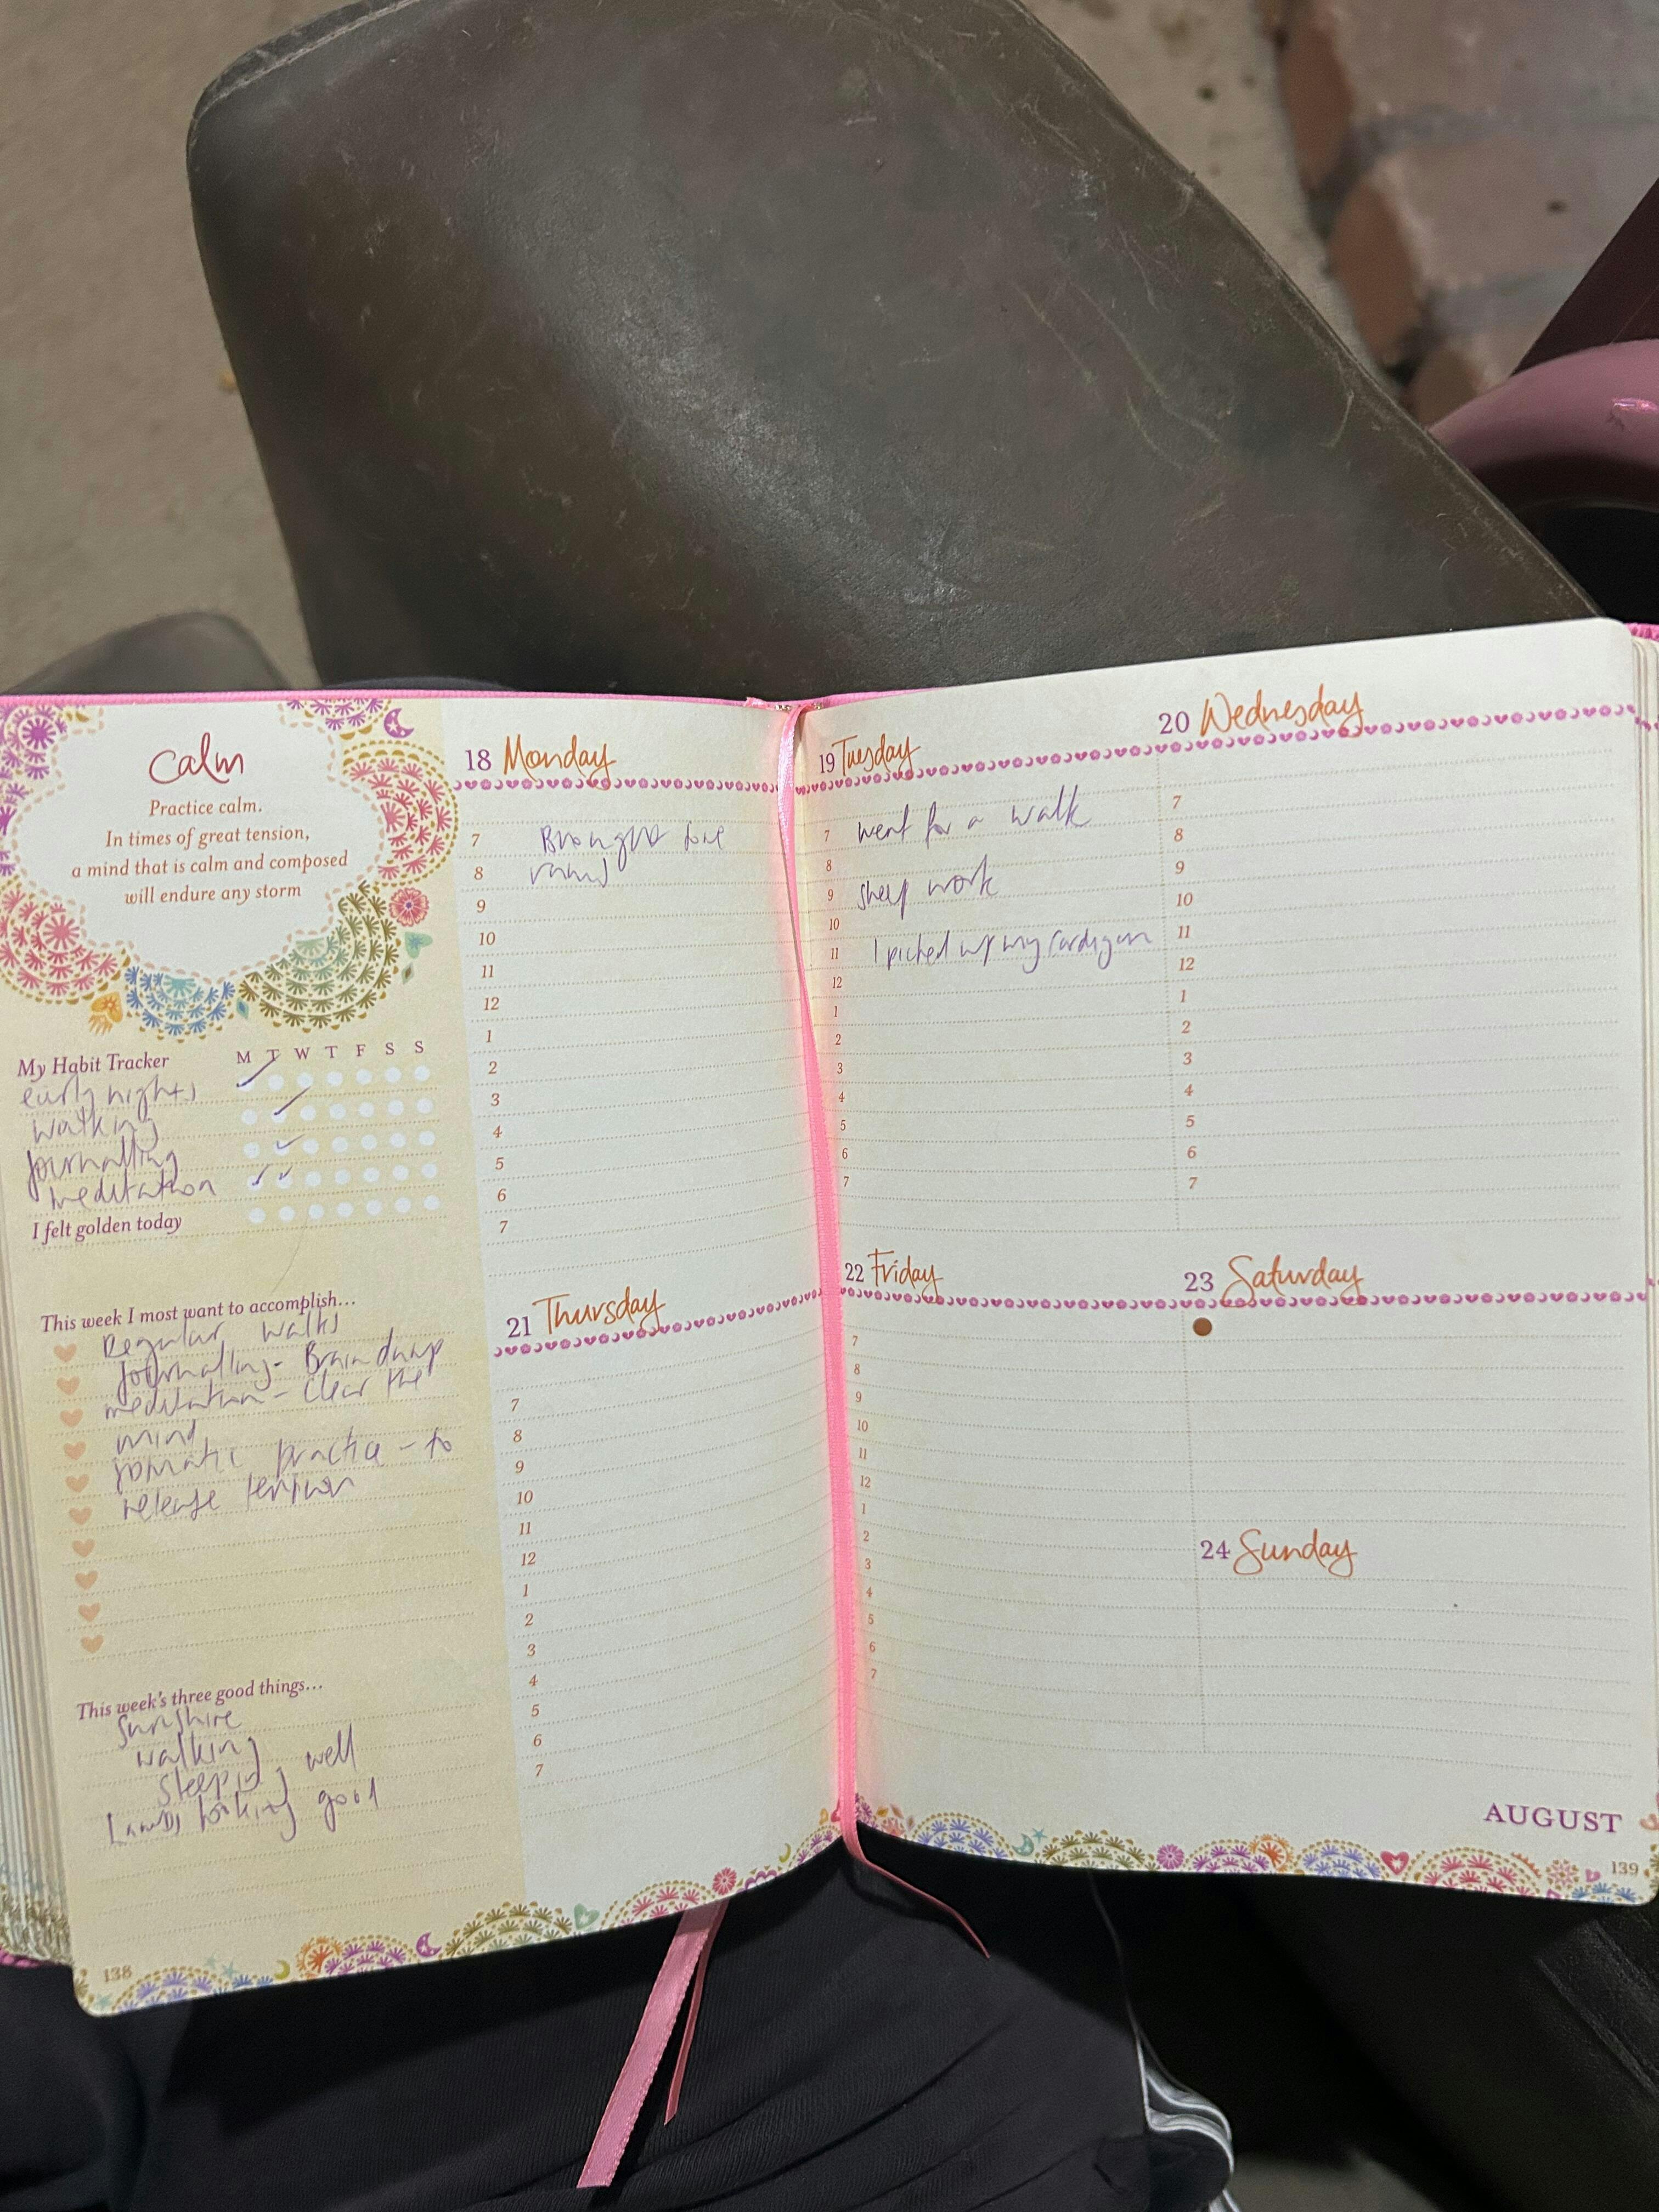 calm
Practice calm.
In times of great tension,
a mind that is calm and composed
will endure any storm
My Habit Tracker
M T W T F S S
early nights
walking
journalling
meditation
I felt golden today
This week I most want to accomplish...
Regular walks
journalling - Brain dump
meditation - Clear the
mind
somatic practice - to
release tension
This week's three good things...
Sunshine
walking
sleeping well
Lambs looking good
138
18 Monday
7 Brought
8
9
10
11
12
1
2
3
4
5
6
7
21 Thursday
7
8
9
10
11
12
1
2
3
4
5
6
7
19 Tuesday
7 went for a walk
8
9 sheep work
10
11 I picked up my cardigan
12
1
2
3
4
5
6
7
20 Wednesday
7
8
9
10
11
12
1
2
3
4
5
6
7
22 Friday
7
8
9
10
11
12
1
2
3
4
5
6
7
23 Saturday
24 Sunday
AUGUST
139